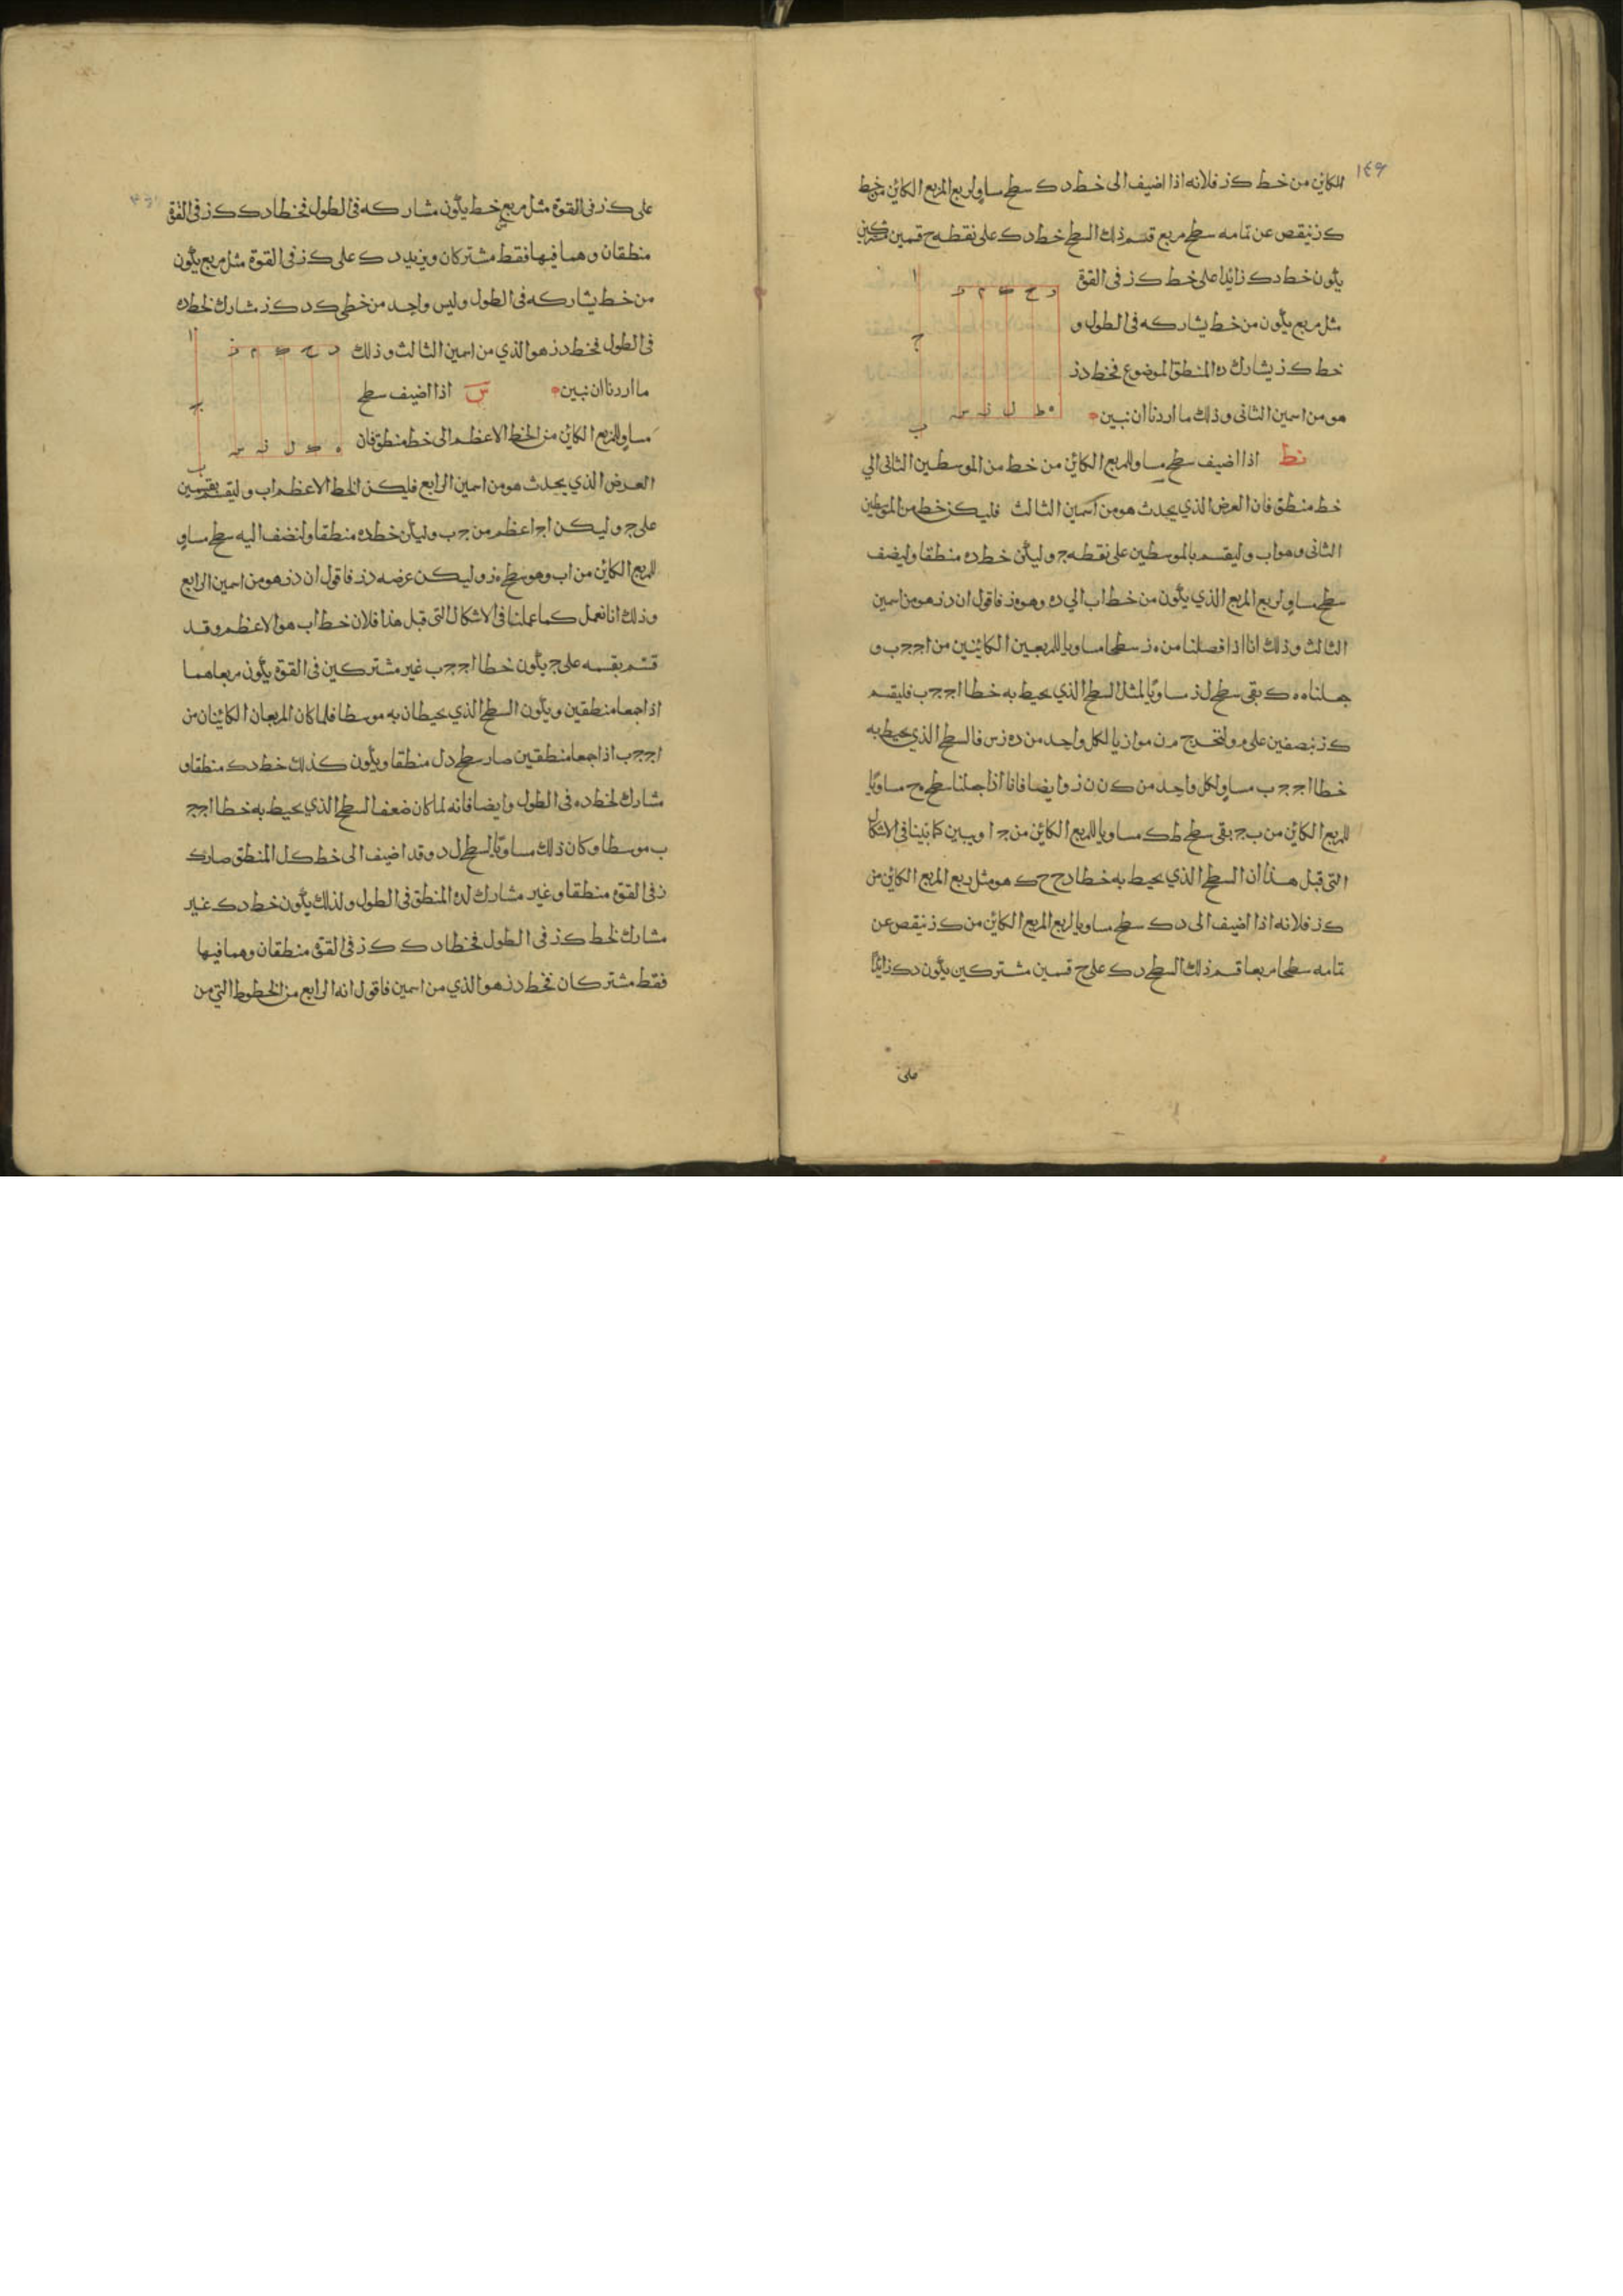 ١٤٩
الكائن من خط كز فلانه اذا اضيف الى خط دك سطح مساو لربع المربع الكائن من خط
كز ينقص عن تمامه سطح مربع قسم ذلك السطح خط دك على نقطه ح قسمين مشتركين
يكون خط دك زائدا على خط كز فى القوة
مثل مربع يكون من خط يشاركه فى الطول و
خط كز يشارك ده المنطق الموضوع فخط دز
هو من اسمين الثانى وذلك ما اردنا ان نبين
د ح ك م ز
ه ط ل ن س
ا
ج
ب
نط اذا اضيف سطح مساو للمربع الكائن من خط من الموسطين الثانى الي
خط منطق فان العرض الذي يحدث هو من اسمين الثالث فليكن خط من الموسطين
الثانى وهو اب وليقسم بالموسطين على نقطه ج وليكن خط ده منطقا وليضف
سطح مساو لربع المربع الذي يكون من خط اب الي ده وهو ه ز فاقول ان دز هو من اسمين
الثالث وذلك انا اذا فصلنا من ه ز سطحا مساويا للمربعين الكائنين من اج ج ب و
جعلناه ه ك بقى سطح ل ز مساويا لمثل السطح الذي يحيط به خطا اج ج ب فليقسم
كز بنصفين على م ولنخرج م ن موازيا لكل واحد من ده زس فالسطح الذي يحيط به
خطا اج ج ب مساو لكل واحد من ك ن ن ز وايضا فانا اذا جعلنا سطح ه ح مساويا
للمربع الكائن من ب ج بقى سطح طك مساويا للمربع الكائن من ج ا ويبين كما بينا فى الاشكال
التى قبل هذا ان السطح الذي يحيط به خطا دح ح ك هو مثل ربع المربع الكائن من
كز فلانه اذا اضيف الى دك سطح مساويا لربع المربع الكائن من كز ينقص عن
تمامه سطحا مربعا قسم ذلك السطح دك على ح قسمين مشتركين يكون دك زائدا
على
على كز فى القوة مثل مربع خط يكون مشاركه فى الطول فخطا دك كز فى القوة
منطقان وهما فيها فقط مشتركان ويزيد دك على كز فى القوة مثل مربع يكون
من خط يشاركه فى الطول وليس واحد من خطى كد كز مشارك لخط ده
فى الطول فخط دز هو الذي من اسمين الثالث وذلك
ما اردنا ان نبين س اذا اضيف سطح
مساو للمربع الكائن من الخط الاعظم الى خط منطق فان
د ح ك م ز
ه ط ل ن س
ا
ج
ب
العرض الذي يحدث هو من اسمين الرابع فليكن الخط الاعظم اب وليقسم بقسمين
على ج وليكن اج اعظم من ج ب وليكن خط ده منطقا ولنضف اليه سطح مساو
للمربع الكائن من اب وهو سطح ه ز وليكن عرضه دز فاقول ان دز هو من اسمين الرابع
وذلك انا نعمل كما عملنا فى الاشكال التى قبل هذا فلان خط اب هو الاعظم وقد
قسم بقسمه على ج يكون خطا اج ج ب غير مشتركين فى القوة يكون مربعاهما
اذا جمعا منطقين ويكون السطح الذي يحيطان به موسطا فلما كان المربعان الكائنان من
اج ج ب اذا جمعا منطقين صار سطح دل منطقا ويكون كذلك خط دك منطقا و
مشارك لخط ده فى الطول وايضا فانه لما كان ضعف السطح الذي يحيط به خطا اج ج
ب موسطا وكان ذلك مساويا لسطح ل د وقد اضيف الى خط كل المنطق صار ك
ز فى القوة منطقا وغير مشارك لده المنطق فى الطول ولذلك يكون خط دك غير
مشارك لخط كز فى الطول فخطا دك كز فى القوة منطقان وهما فيها
فقط مشتركان فخط دز هو الذي من اسمين فاقول انه الرابع من الخطوط التي من